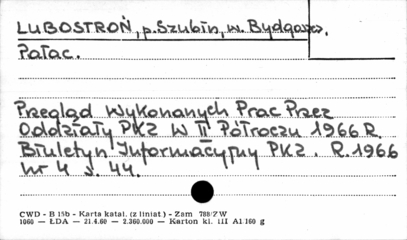 LUBOSTROŃ, p. Szubin, w. Bydgoszcz.
Pałac.
Przegląd Wykonanych Prac Przez
Oddziały PKZ w II Półroczu 1966 R.
Biuletyn Informacyjny PKZ. R. 1966
nr 4 s. 44.
CWD - B 15b - Karta katal. (z liniat.) - Zam 788/ZW
1060 — ŁDA — 21.4.60 — 2.360.000 — Karton kl. III A1 160 g